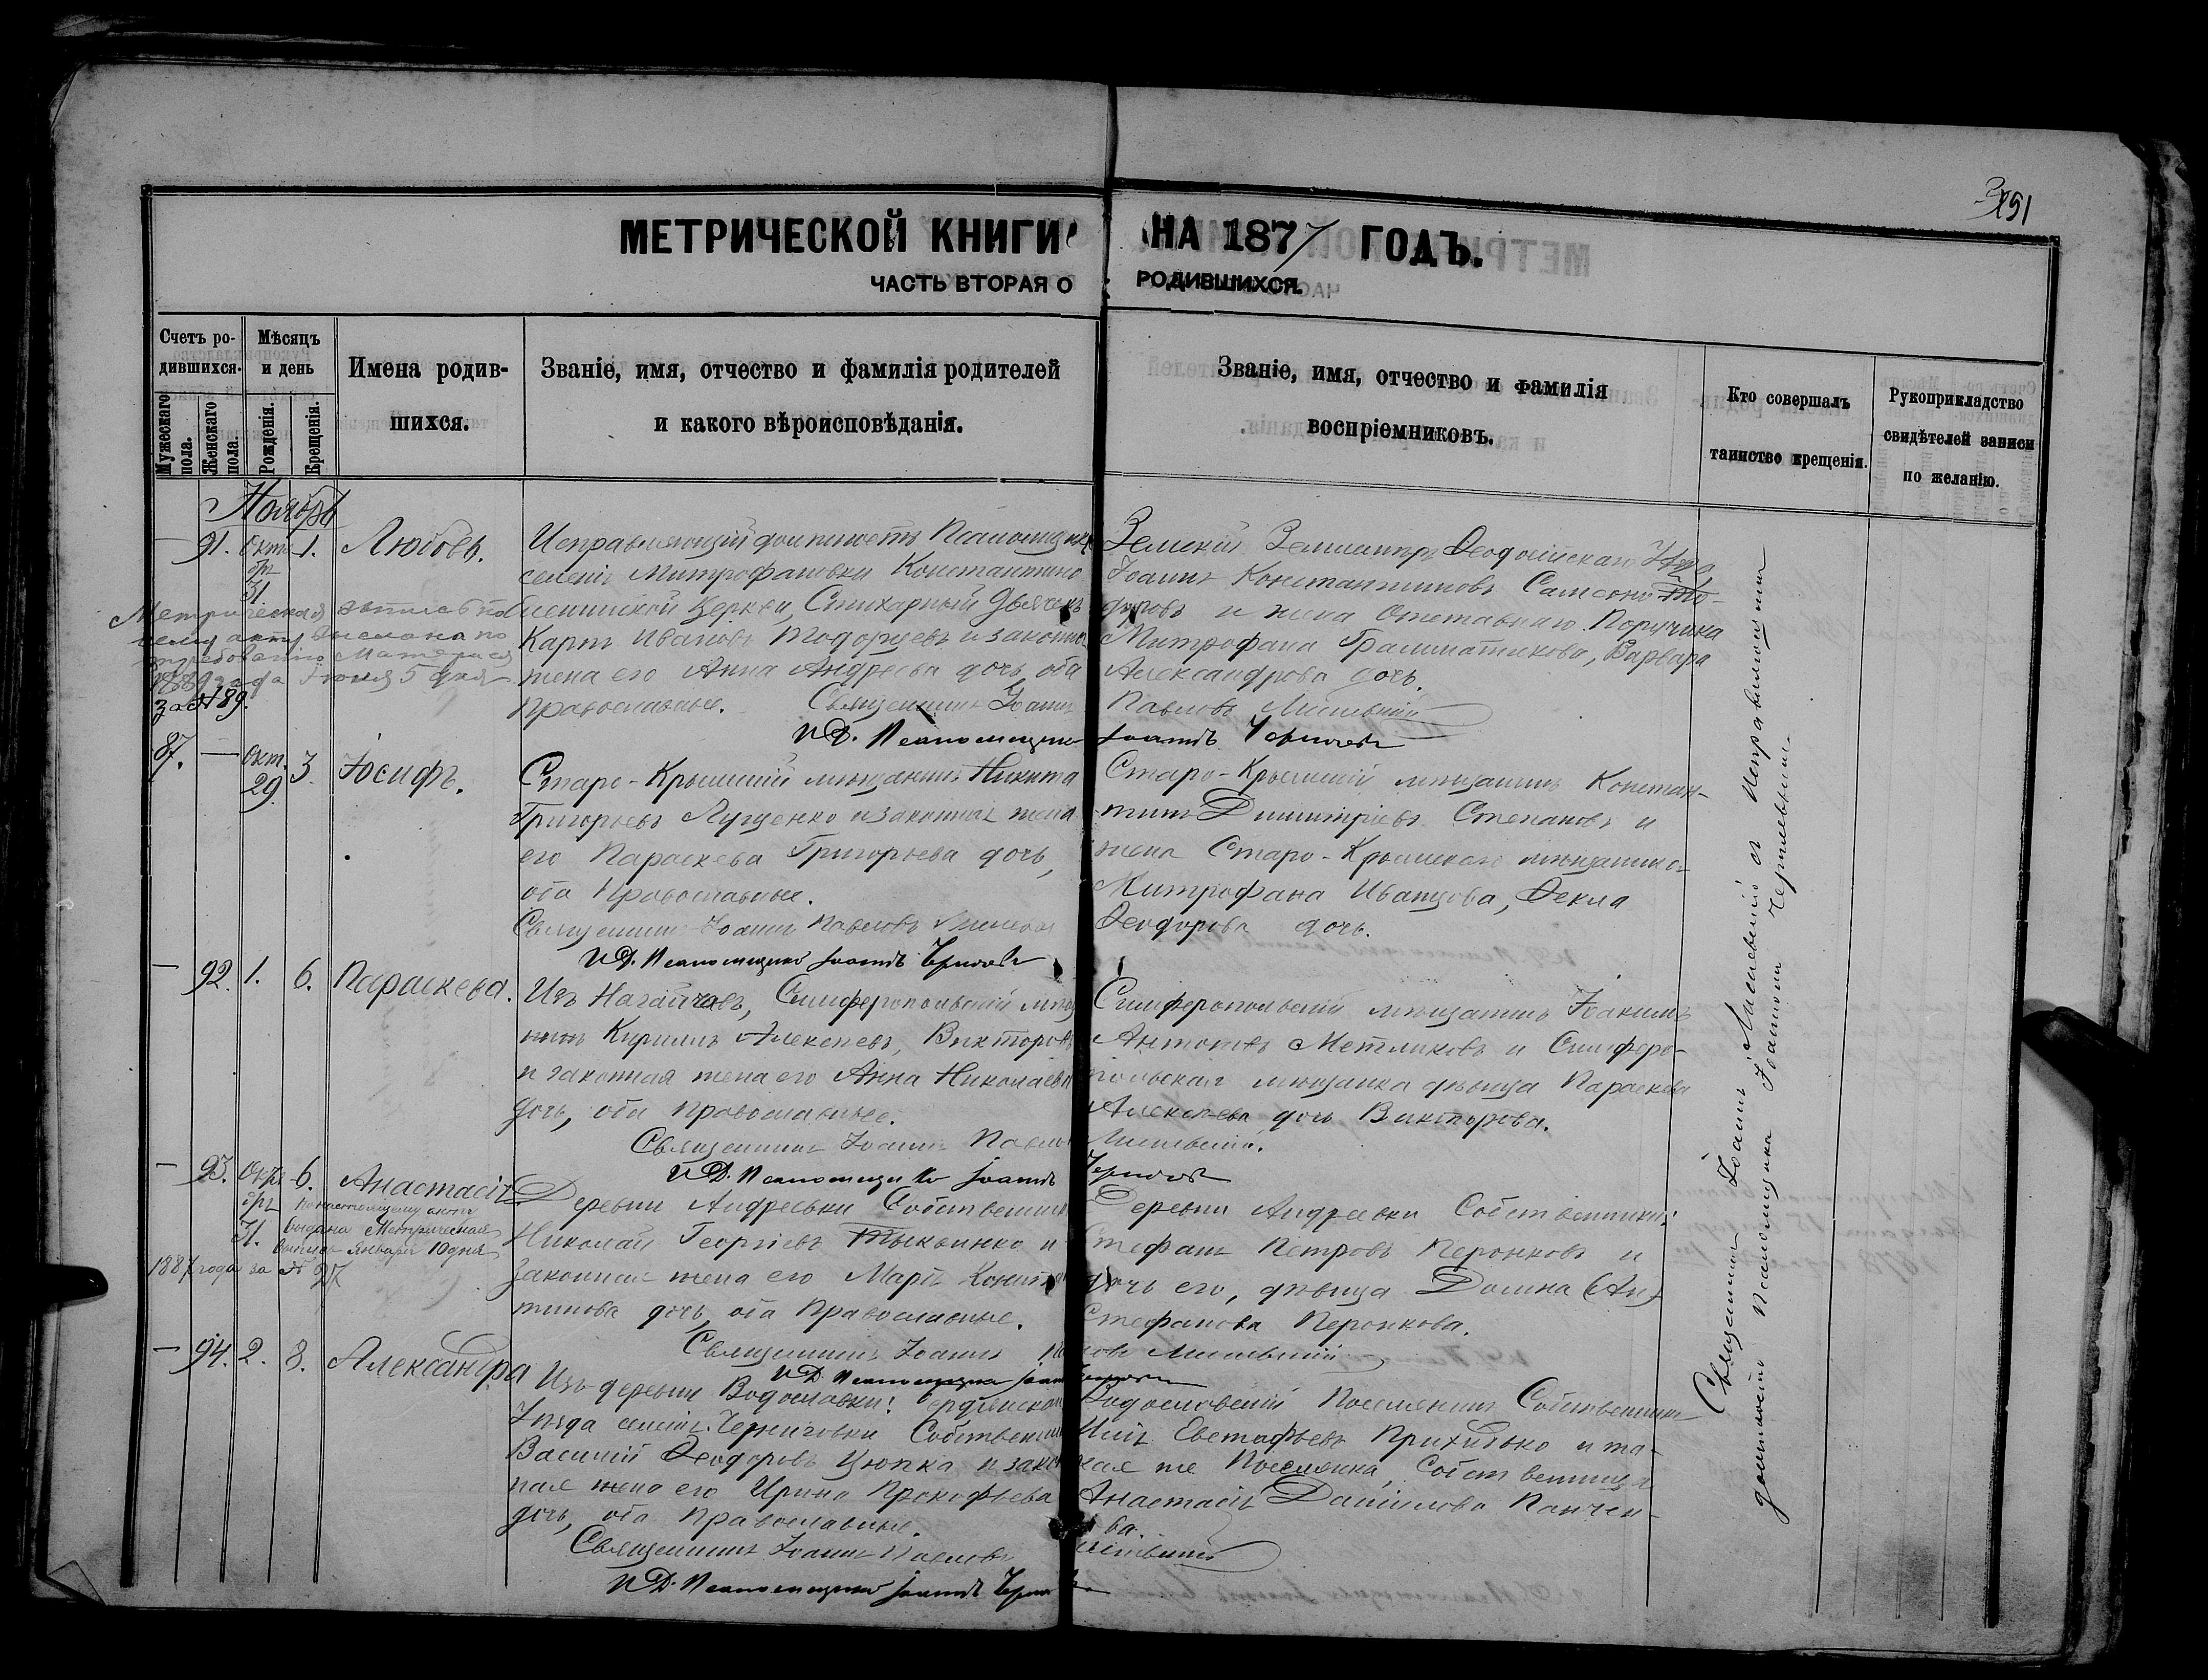 351
МЕТРИЧЕСКОЙ КНИГИ НА 1877 ГОДЪ.
ЧАСТЬ ВТОРАЯ О РОДИВШИХСЯ.
Счетъ родившихся.
Мужескаго пола.
Женскаго пола.
Мѣсяцъ и день
Рожденія.
Крещенія.
Имена родившихся.
Званіе, имя, отчество и фамилія родителей
и какого вѣроисповѣданія.
Званіе, имя, отчество и фамилія
воспріемниковъ.
Кто совершалъ
таинство крещенія.
Рукоприкладство
свидѣтелей записи
по желанію.
Ноябрь
— 91. Октября 31 1. Любовь.
Исправляющій должность Псаломщика
селенія Митрофановки Константино
Еленинской Церкви, Стихарный Дьячекъ
Карпъ Ивановъ Тодорцевъ и законная
жена его Анна Андреева дочь, оба
Православные. Священникъ Іоаннъ Павловъ
И.Д. Псаломщика Іоаннъ
Земскій Феодосійскаго Уѣзда
Іоаннъ Константиновъ
и жена Отставнаго Поручика
Митрофана Грамматикова, Варвара
Александрова дочь.
Метрическая выпись по
сему акту выслана по
требованію
1889 года Іюня 5 дня
за № 189.
87. — Окт. 29. 3. Іосифъ.
Старо-Крымскій мѣщанинъ Никита
Григорьевъ Лущенко и законная жена
его Параскева Григорьева дочь,
оба Православные.
Священникъ Іоаннъ Павловъ
И.Д. Псаломщика Іоаннъ
Старо-Крымскій мѣщанинъ Констан-
тинъ Димитріевъ Степановъ и
жена Старо-Крымскаго мѣщанина
Митрофана Иванцова, Фекла
Феодорова дочь.
— 92. 1. 6. Параскева.
Изъ Симферопольскій мѣща
нинъ Кириллъ Алексѣевъ, Викторовъ
и законная жена его Анна Николаева
дочь, оба Православные.
Священникъ Іоаннъ Павловъ
И.Д. Псаломщика Іоаннъ
Симферопольскій мѣщанинъ Іоакимъ
Антоновъ Метликовъ и Симферо-
польская мѣщанка дѣвица Параскева
Алексѣева дочь Викторова.
— 93. Октября 31. 6. Анастасія
Деревни Андреевки Собственникъ
Николай Георгіевъ и
законная жена его Марія Констан
тинова дочь, оба Православные.
Священникъ Іоаннъ Павловъ
И.Д. Псаломщика Іоаннъ
Деревни Андреевки Собственникъ
Стефанъ Петровъ Перонковъ и
дочь его, дѣвица Домна
Стефанова Перонкова.
По настоящему акту
выдана Метрическая
выпись Января 10 дня
1887 года за № 97
— 94. 2. 8. Александра
Изъ деревни Бердянскаго
Уѣзда селенія Черниговки Собственникъ
Василій Феодоровъ Цюпка и закон
ная жена его Ирина Прокофьева
дочь, оба Православные.
Священникъ Іоаннъ Павловъ
И.Д. Псаломщика Іоаннъ
Поселянинъ Собственникъ
Евстафьевъ Прихидько и та-
кая же Поселянка, Собственница
Анастасія Данилова Панчен-
Священникъ Іоаннъ съ Исправляющимъ
должность Псаломщика Іоанномъ